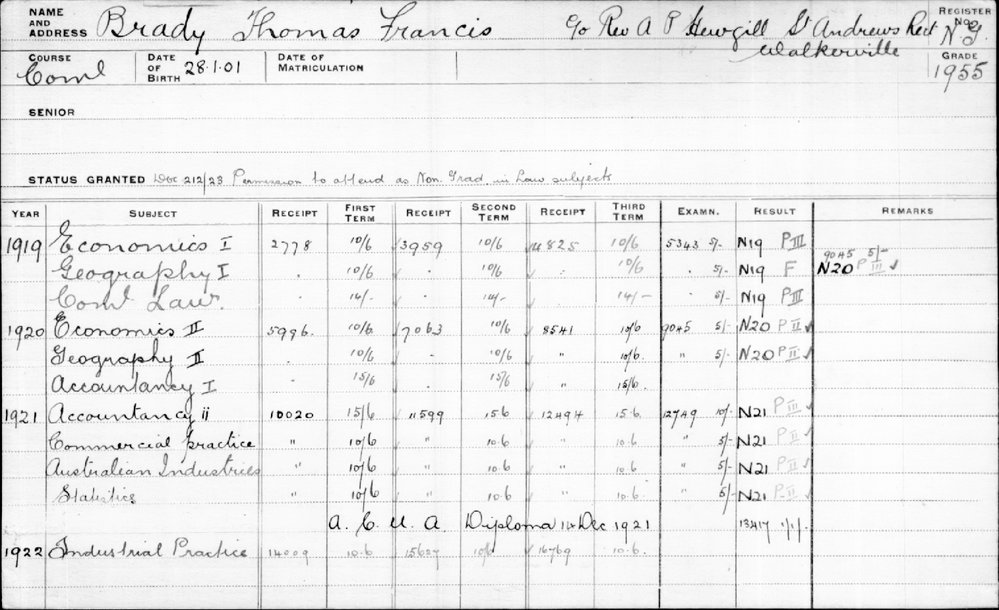 NAME AND ADDRESS Brady Thomas Francis c/o Rev A P Hewgill St Andrews Rect Walkerville REGISTER No. N.G.
COURSE Coml DATE OF BIRTH 28.1.01 DATE OF MATRICULATION GRADE 1955
SENIOR
STATUS GRANTED Doc 212/23 Permission to attend as Non. Grad. in Law subjects
YEAR SUBJECT RECEIPT FIRST TERM RECEIPT SECOND TERM RECEIPT THIRD TERM EXAMN. RESULT REMARKS
1919 Economics I 2778 10/6 3959 10/6 4825 10/6 5343 5/- N19 P III
Geography I . 10/6 . 10/6 . 10/6 . 5/- N19 F 9045 5/- N20 P III ✓
Coml Law . 14/- . 14/- . 14/- . 5/- N19 P III
1920 Economics II 5996. 10/6 7063 10/6 8541 10/6 9045 5/- N20 P II ✓
Geography II . 10/6 . 10/6 " 10/6. " 5/- N20 P II ✓
Accountancy I . 15/6 . 15/6 " 15/6.
1921 Accountancy ii 10020 15/6 11599 15.6 12494 15.6 12749 10/- N21 P III
Commercial Practice " 10/6 " 10.6 " 10.6 " 5/- N21 P II
Australian Industries " 10/6 " 10.6 " 10.6 " 5/- N21 P II
Statistics " 10/6 " 10.6 " 10.6 " 5/- N21 P II
A. C. U. A Diploma 14 Dec 1921 13417 1/1/.
1922 Industrial Practice 14009 10.6 15627 10/6 16769 10.6.